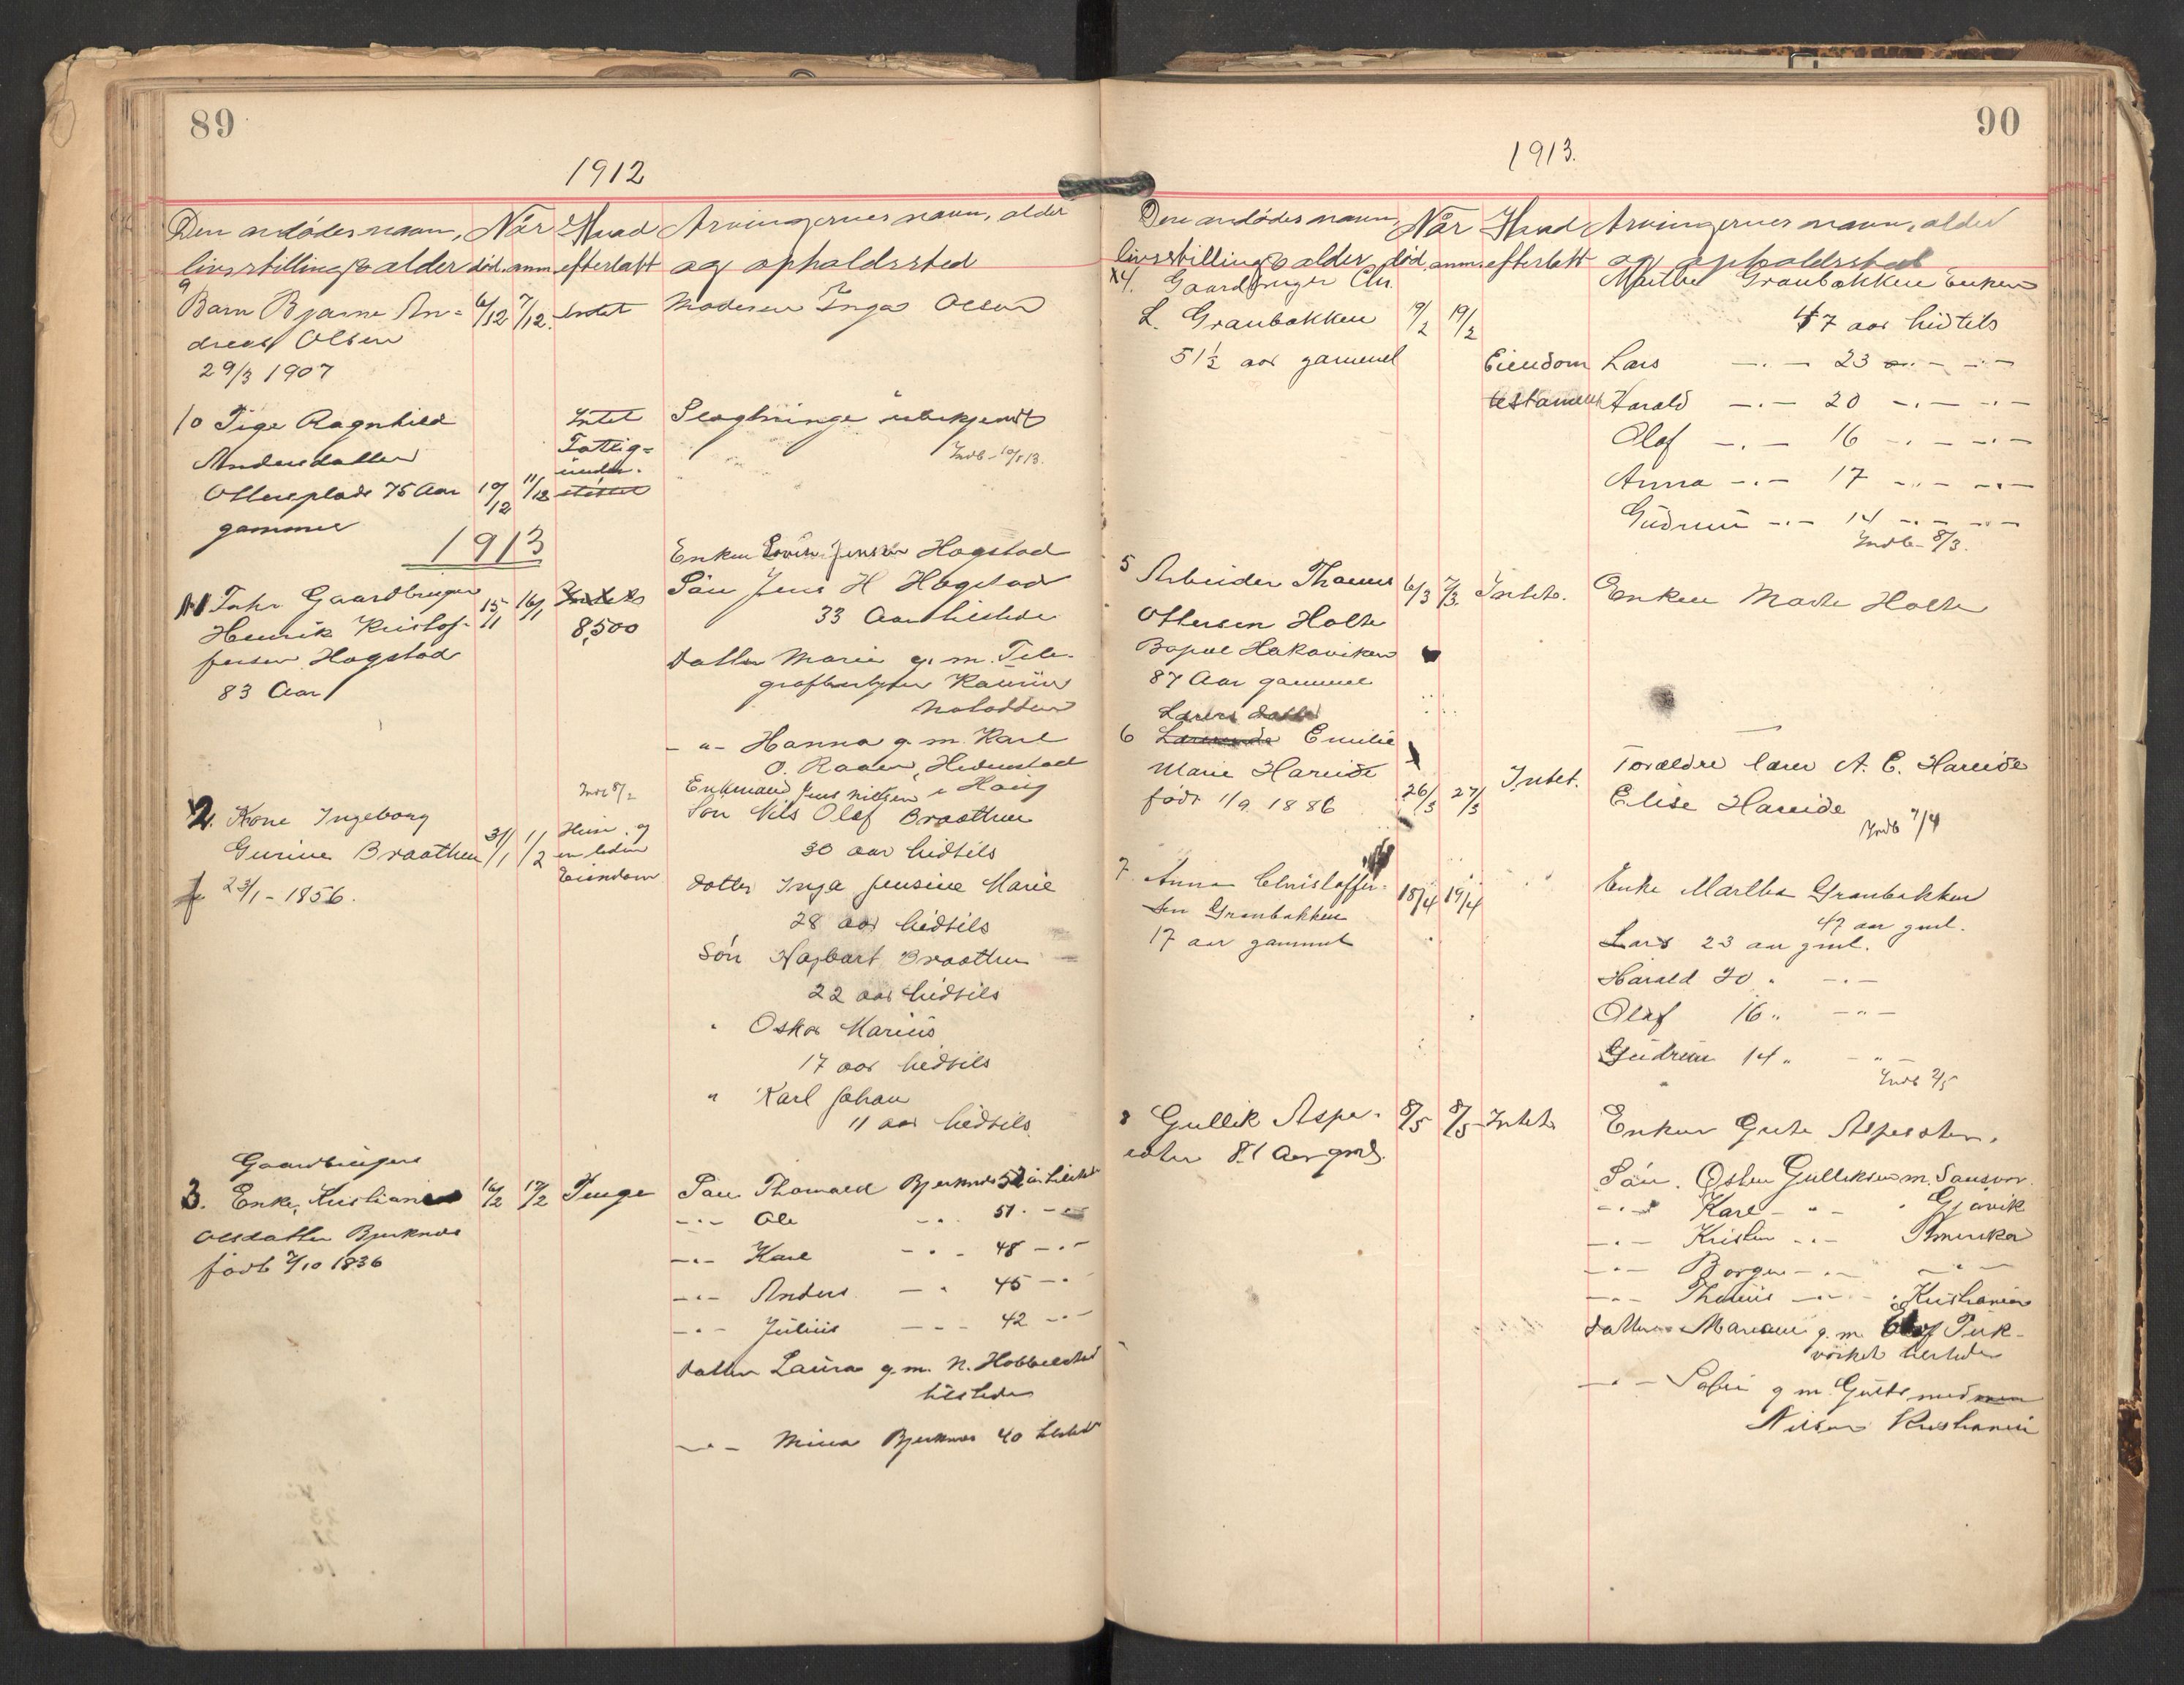 89
1912
Den avdødes navn, Når Hvad Arvingernes navn, alder
livsstilling & alder død. anm. efterlatt og opholdssted
9
Barn Bjarne An- 6/12 7/12. Intet Moderen Inga Olsen
dreas Olsen
29/3 1907
10 Pige Ragnhild Intet Slægtninge ubekjendt
Andersdatter Fattig- Indb. 10/1 13.
under-
Ottersplads 75 Aar 10/12 11/12 støttet
gammel
1913
Enken Hogstad
1 Fhv. Gaardbruger 15/1 16/1 Intet Søn Jens H Hogstad
Henrik Kristof- 8,500 33 Aar hersteds
fersen Hogstad Datter Marie g. m. Tele-
83 Aar grafbestyrer
Notodden
- " - Hanna g. m. Karl
O. Raaen, Hedenstad
Indb 8/2 Enkemand Jens Nilsen i Haug
2. Kone Ingeborg Søn Nils Olaf Braathen
Gurine Braathen 31/1 1/2 Hus og
en liden 30 aar hidtils
Eiendom
f 23/1 - 1856. datter Inga Jensine Marie
28 aar hidtils
Søn Hagbart Braathen
22 aar hidtils
" Oskar Marius
17 aar hidtils
" Karl Johan
11 aar hidtils.
Gaardbruger
3. Enke, Kristiane 16/2 17/2 Penge Søn Thorvald Bjerknes 52 år
Olsdatter Bjerknes - " - Ole - " - 51. - " -
født 7/10 1836 - " - Karl - " - 48 - " -
- " - Anders - " 45 - "
- " - Julius - - - 42 - " -
Datter Laura g. m. N.
hersteds
- " - Mina Bjerknes 40
90
1913.
Den avdødes navn, Når Hvad Arvingernes navn, alder
livsstilling & alder død. anm. efterlatt og opholdssted
4. Gaardbruger Chr. Marthe Granbakken Enken
L. Granbakken 9/2 19/2 47 aar hidtils
51½ aar gammel Eiendom Lars - . - 23 - . -
testament Harald - . - 20 - . - - . -
Olaf - . - 16 - . - - . -
Anna - . - 17 - . - - . -
Gudrun - . - 14 - . - - . -
Indb - 8/3.
5 Arbeider 6/3 7/3. Intet. Enken Marte Holte
Ottersen Holte
Hakaviken
87 Aar gammel
Lærers datter
6 Emilie Forældre lærer A. E. Hareide
Marie Hareide 26/3 27/3 Intet. Elise Hareide
født 11/9. 1886 Indb 7/4
7. Anna Christoffer- 18/4 19/4 Enke Martha Granbakken
sen Granbakken 47 aar gml.
17 aar gammel Lars 23 aar gml.
Harald 20 " - " -
Olaf 16 " - " -
Gudrun 14 " - " -
Indb 2/5
8 Gullik Aspe- 8/5 8/5 Intet. Enken Gute
seter 81 Aar gml. Søn. Osten Gulliksen m. Sansvær.
- " - Karl - " - " Gjøvik
- " - Kristen - " - Amerika
- " - Borger - " - - " -
- " - - " - Kristiania
Datter Mariane g. m. Olaf
hersteds
- " - Sofie g m. Gultsmed
Nilsen Kristiania